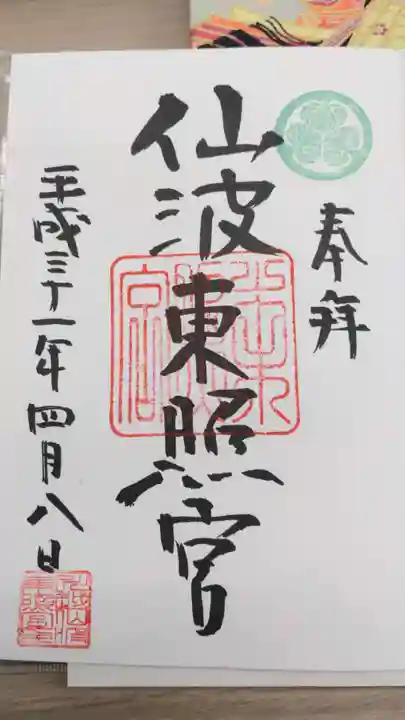 奉拝
仙波東照宮
平成三十一年四月八日